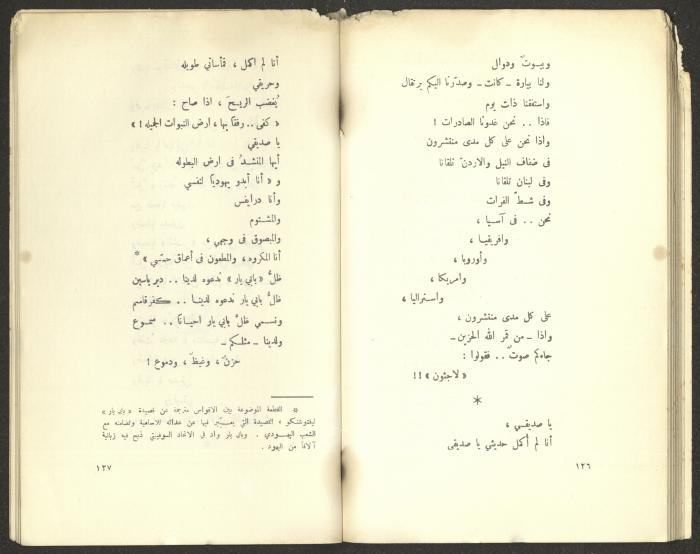 وبيـوتٌ ودوال
ولنا بيارة ـ كانت ـ وصدّرنا اليكم برتقال
واستفقنا ذات يوم
فاذا . . نحن غدونا الصادرات !
واذا نحن على كل مدى منتشرون
فى ضفاف النيل والاردنّ تلقانا
وفى لبنان تلقانا
وفى شـطّ الفرات
نحن . . فى آسـيا ،
وافريقيـا ،
وأوروبا ،
وامريكا ،
واسـتراليا ،
على كل مدى منتشرون ،
واذا ـ من قمر الله الحزين ـ
جاءكم صوتٌ . . فقولوا :
« لاجئون » !!
*
يا صديقـي ،
أنا لم أكمل حديثي يا صديقى
١٢٦
أنا لم اكمل ، فمأساتي طويله
وحريقي
يُغضب الريـحَ ، اذا صاح :
« كفى . . رفقاً بها ، ارض النبوات الجميله ! »
يا صديقي
أيها المنشـدُ فى ارض البطوله
و « أنا أبدو يهودياً لنفسي
وأنا درايفس
والمشـتوم
والمبصوق فى وجهي ،
أنا المكروه ، والمطعون فى أعماق حسّي » *
ظلُّ « بابي يار » ندعوه لدينا . . دير ياسين
ظلُّ بابي يار ندعوه لدينـا . . كـفر قاسم
ونسـمي ظلَّ بابي يار احيانـاً . . سمـوع
ولدينا ـ مثلـكم ـ
حزنٌ ، وغيظٌ ، ودموع !
* القطعة الموضوعة بين الاقواس مترجمة عن قصيدة « بابي يار »
ليفتوشنكو ، القصيدة التي يعـبّر فيها عن عدائه للاسامية وتضامنه مع
الشعب اليهـودي . وبابي يار واد في الاتحاد السوفييتي ذبح فيه زبانية
آلافاً من اليهود .
١٢٧